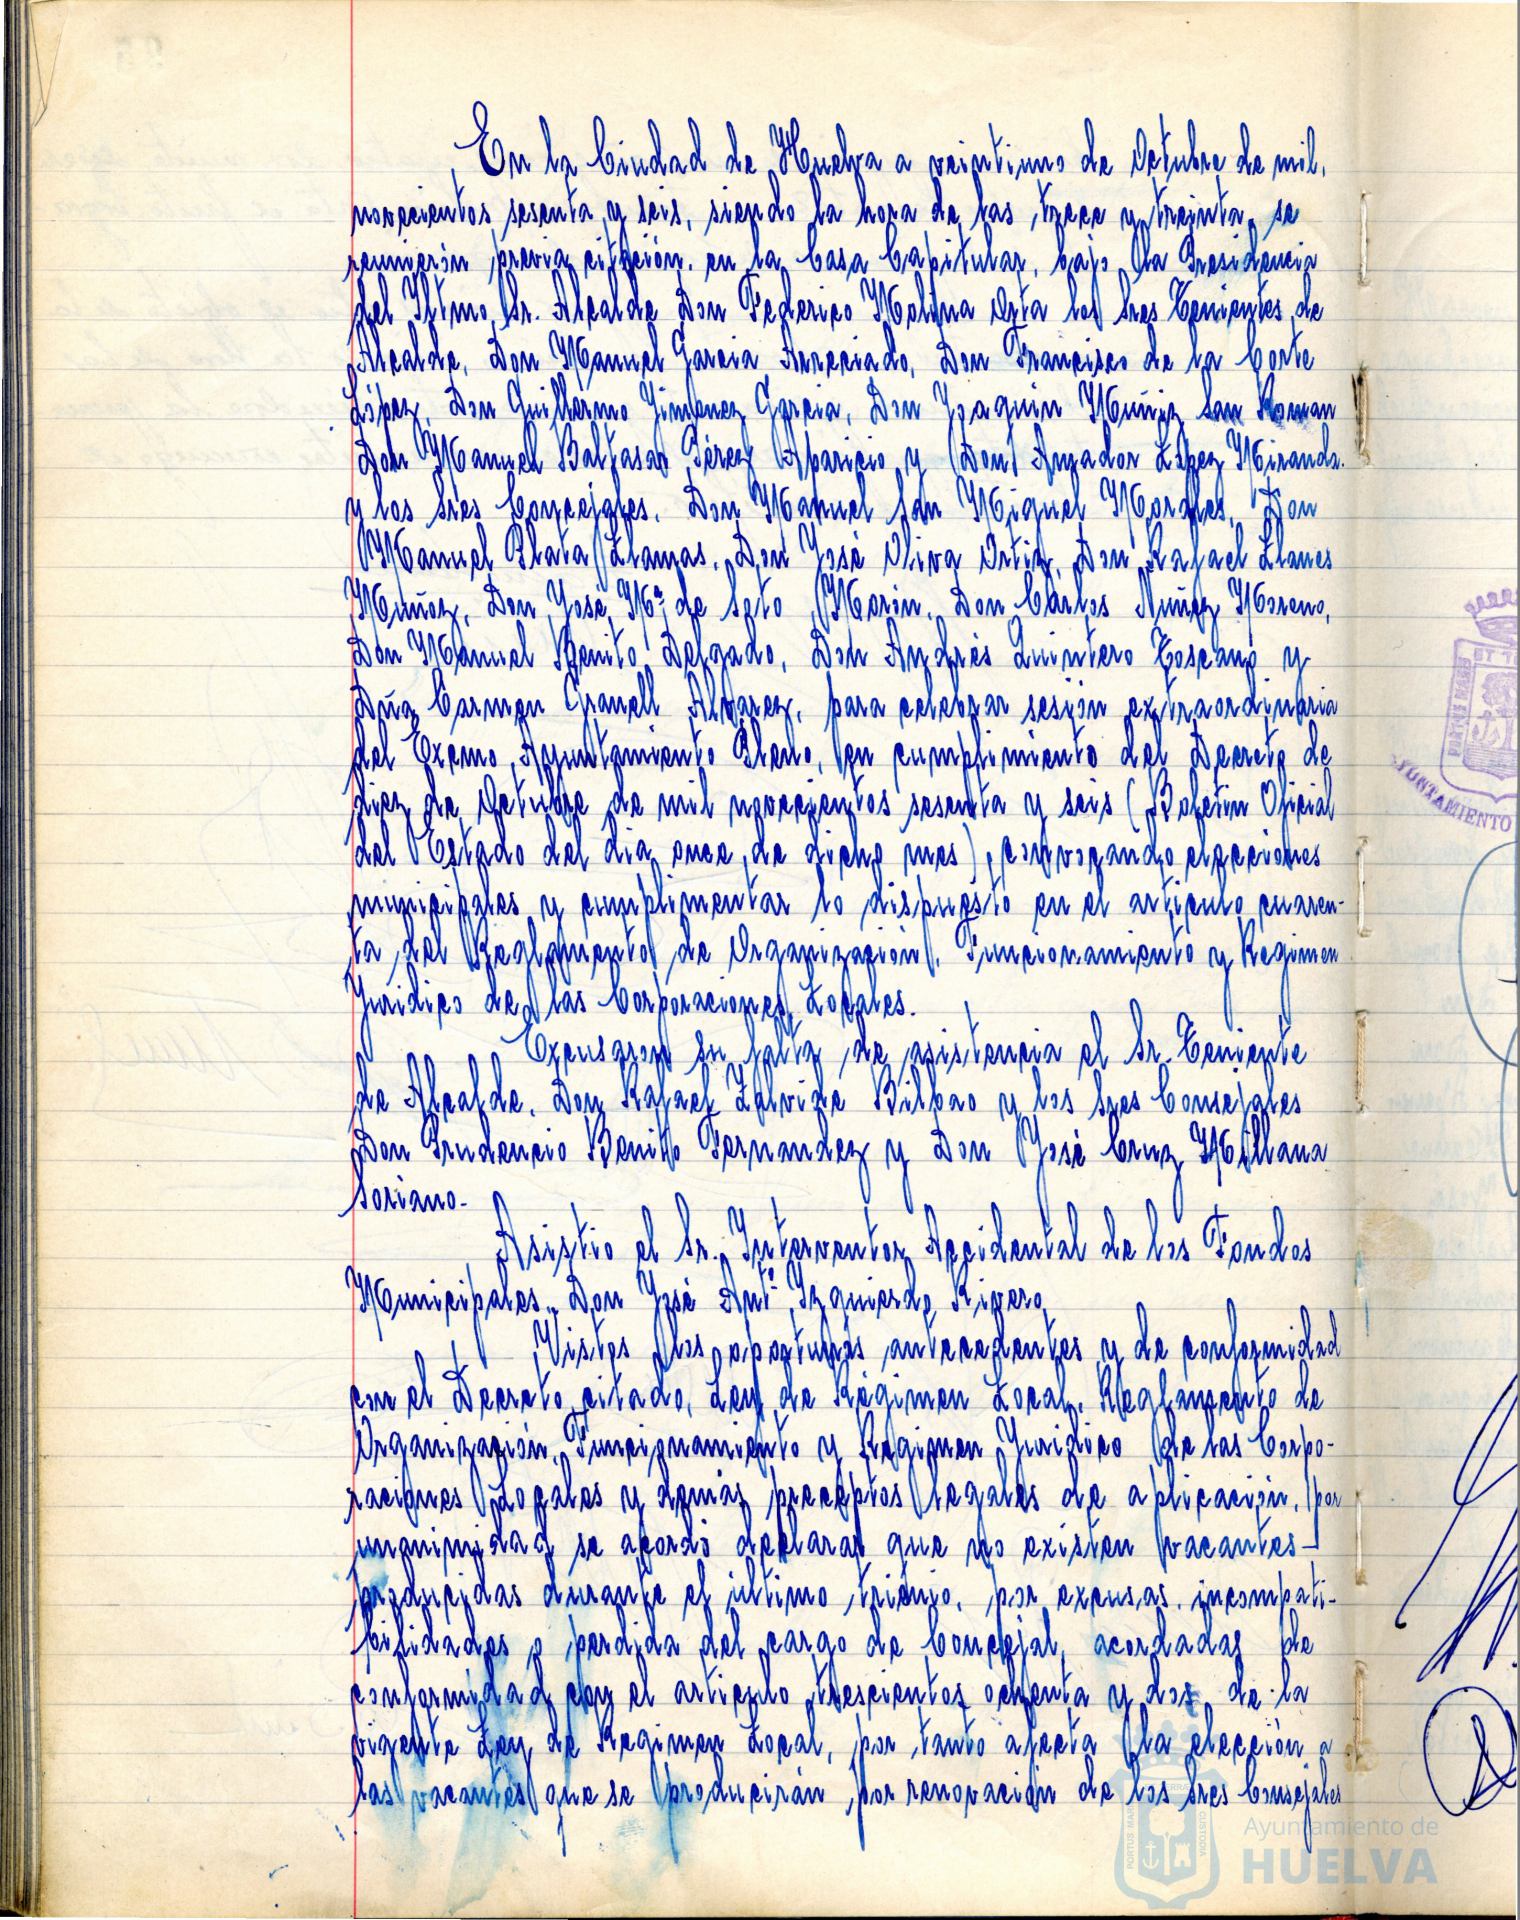 En la Ciudad de Huelva a veintiuno de Octubre de mil,
novecientos sesenta y seis, siendo la hora de las trece y treinta, se
reunieron previa citación, en la Casa Capitular, bajo la Presidencia
del Iltmo. Sr. Alcalde Don Federico Molina Orta los Sres Tenientes de
Alcalde, Don Manuel Garcia Arreciado, Don Francisco de la Corte
López, Don Guillermo Jimenez Garcia, Don Joaquin Muñiz San Roman
Don Manuel Baltasar Pérez Aparicio y Don Amador López Miranda
y los Sres Concejales, Don Manuel San Miguel Morales, Don
Manuel Plata Llamas, Don José Oliva Ortiz, Don Rafael Llanes
Muñoz, Don José Mª de Soto Morón, Don Cárlos Nuñez Moreno,
Don Manuel Benito Delgado, Don Andrés Quintero Toscano y
Dña Carmen Granell Alvarez, para celebrar sesión extraordinaria
del Excmo. Ayuntamiento Pleno, en cumplimiento del Decreto de
diez de Octubre de mil novecientos sesenta y seis (Boletin Oficial
del Estado del dia once de dicho mes), convocando elecciones
municipales y cumplimentar lo dispuesto en el articulo cuaren-
ta del Reglamento de Organización, Funcionamiento y Regimen
Juridico de las Corporaciones Locales.
Excusaron su falta de asistencia el Sr. Teniente
de Alcalde, Don Rafael Zalvide Bilbao y los Sres Consejales
Don Prudencio Benito Fernandez y Don José Cruz Millana
Soriano-
Asistio el Sr. Interventor Accidental de los Fondos
Municipales, Don José Antº Izquierdo Rivero,
Vistos los oportunos antecedentes y de conformidad
con el Decreto citado, Ley de Régimen Local, Reglamento de
Organización, Funcionamiento y Regimen Juridico de las Corpo-
raciones Locales y demás preceptos legales de aplicación, por
unanimidad se acordó declarar que no existen vacantes
producidas durante el último trienio, por excusas, incompati-
bilidades o perdida del cargo de Concejal, acordadas de
conformidad con el articulo trescientos ochenta y dos de la
vigente Ley de Regimen Local, por tanto afecta la elección a
las vacantes que se producirán por renovación de los Sres Consejales
AYUNTAMIENTO
Ayuntamiento de
HUELVA